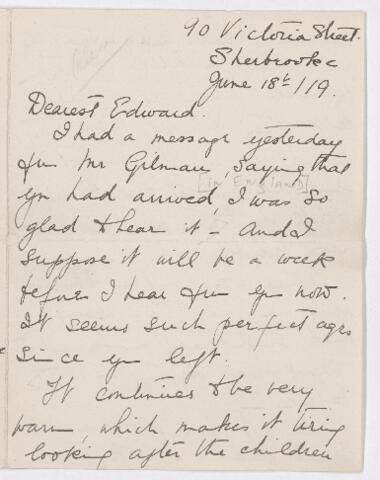 90 Victoria Street.
Sherbrooke
June 18th/19.
Dearest Edward.
I had a message yesterday
fm Mr Gilman, saying that
[in England]
yn had arrived, I was so
glad to hear it - And I
suppose it will be a week
before I hear fm yn now.
It seems such perfect ages
since yn left.
It continues to be very
warm, which makes it tiring
looking after the children